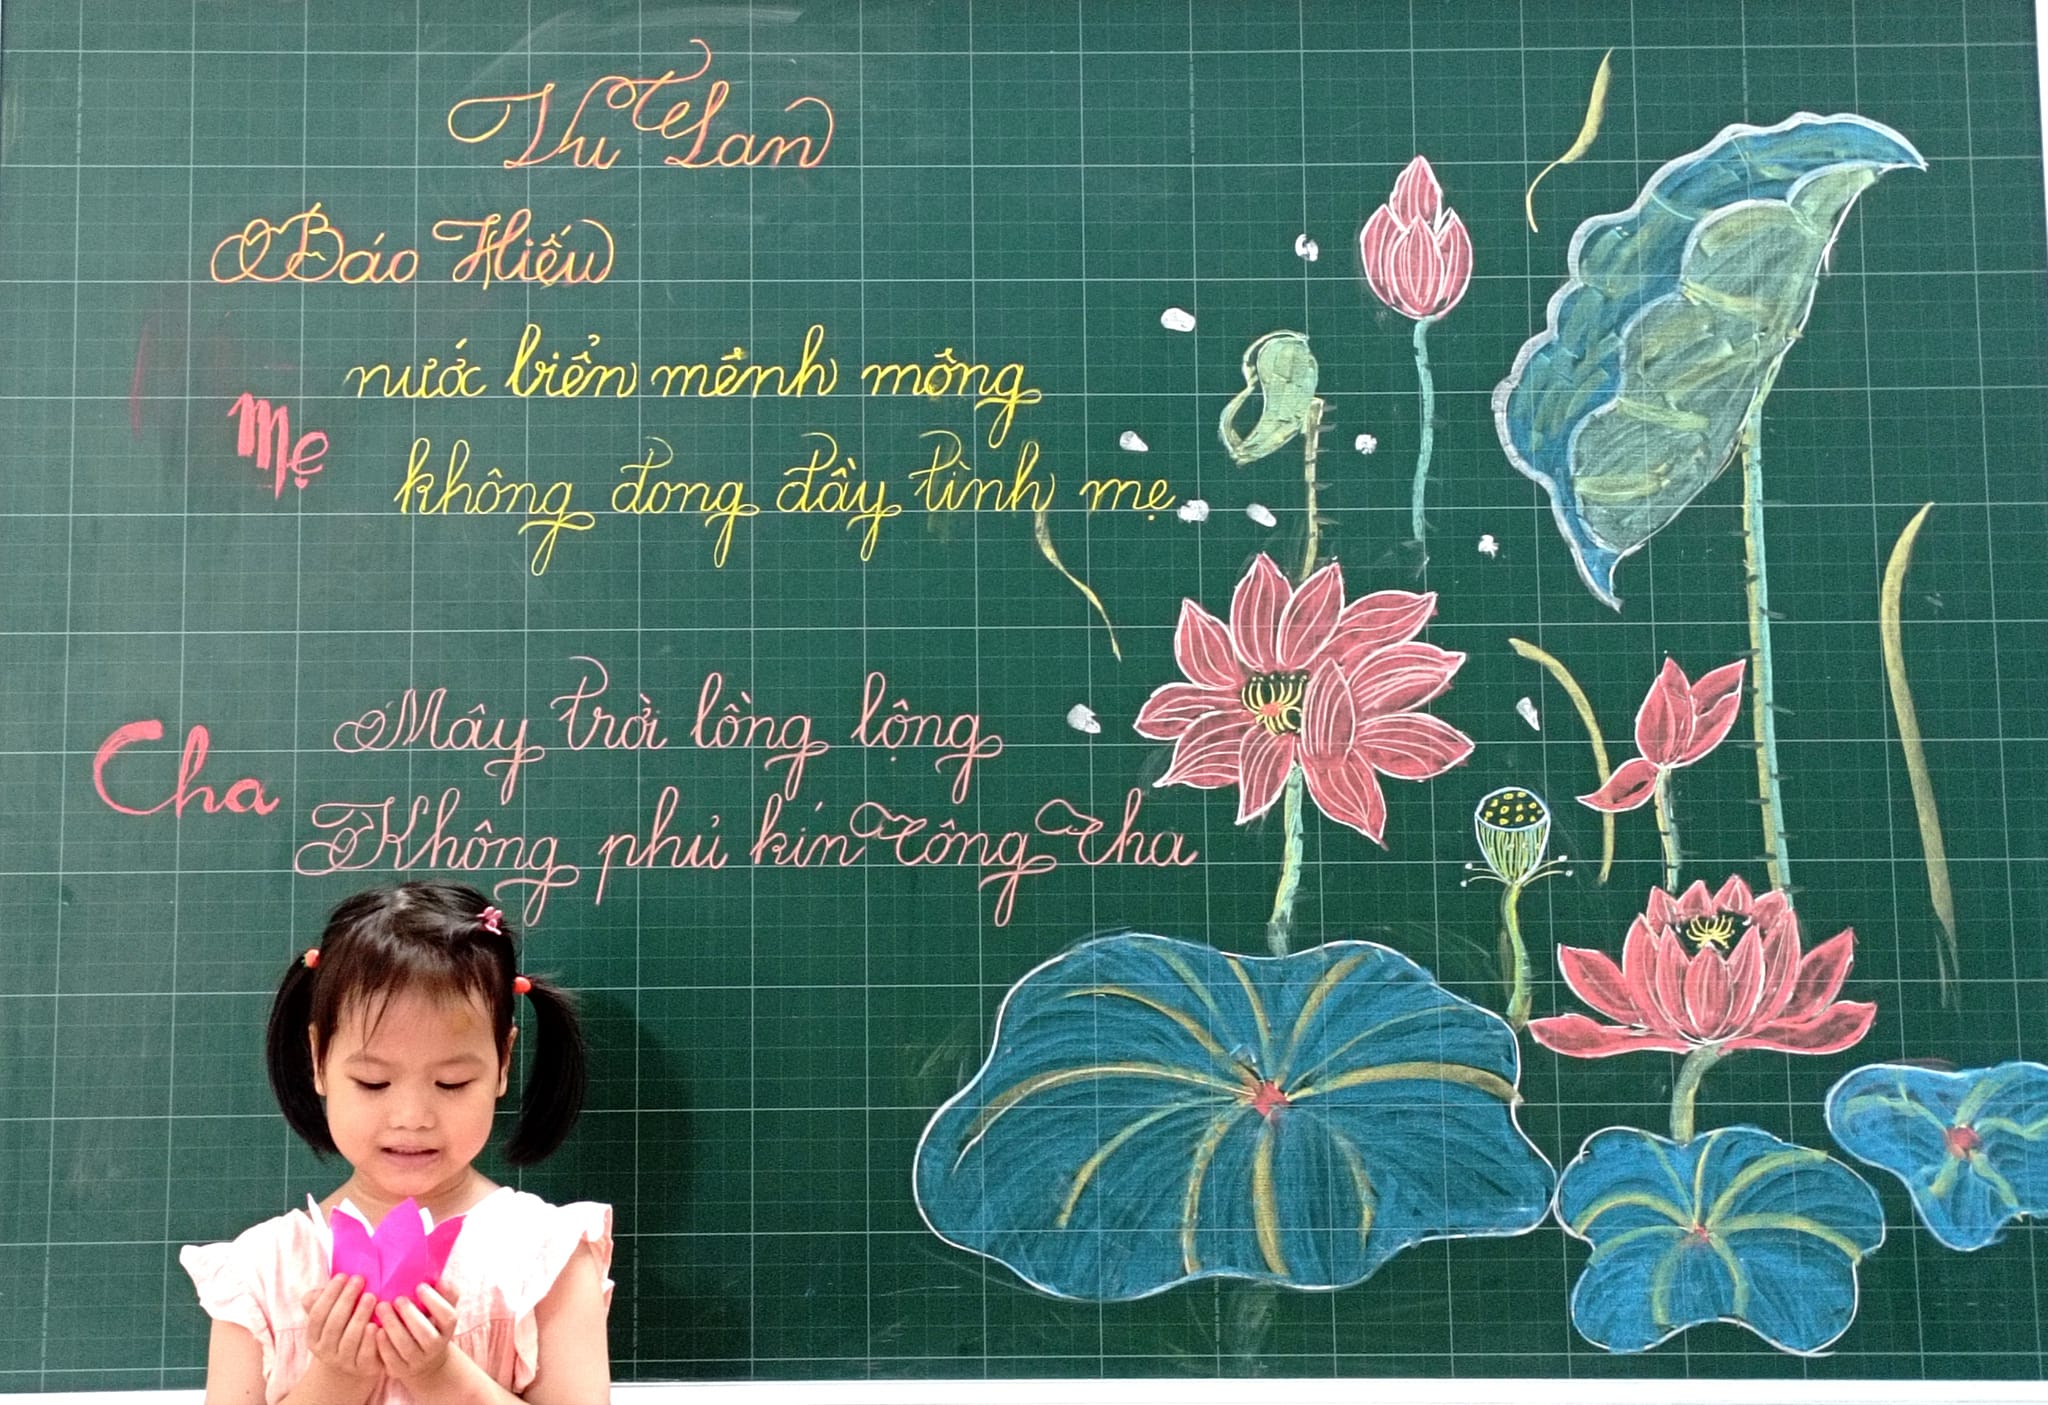 Vu Lan
Báo Hiếu
Mẹ
nước biển mênh mông
không đong đầy tình mẹ
Cha
Mây trời lồng lộng
Không phủ kín công cha